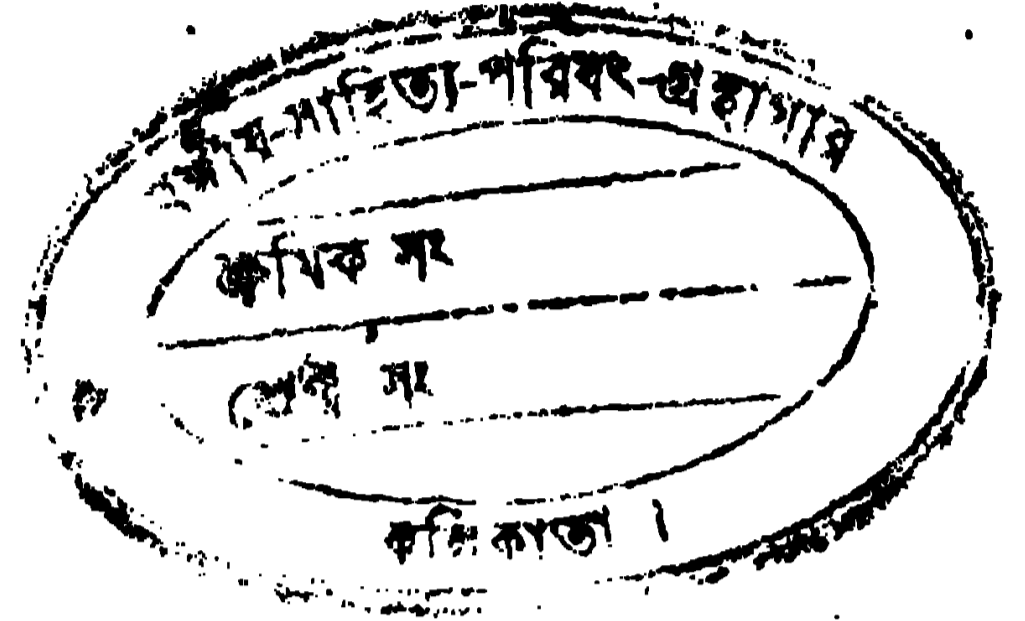 বঙ্গীয়-সাহিত্য-পরিষৎ-গ্রন্থাগার
ক্রমিক সং
শ্রেণি সং
কলিকাতা ।